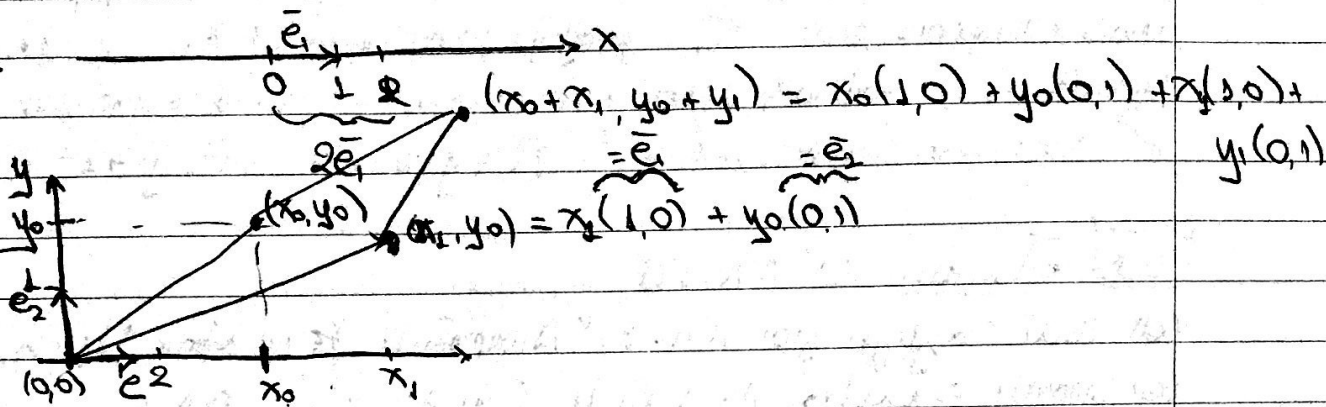 ē₁
x
0 1 2
(x₀+x₁, y₀+y₁) = x₀(1,0) + y₀(0,1) + x₁(1,0) +
y₁(0,1)
2ē₁
=ē₁ =ē₂
y
y₀
(x₀,y₀)
(x₁,y₀) = x₁(1,0) + y₀(0,1)
1
e₂
(0,0) e 2 x₀ x₁